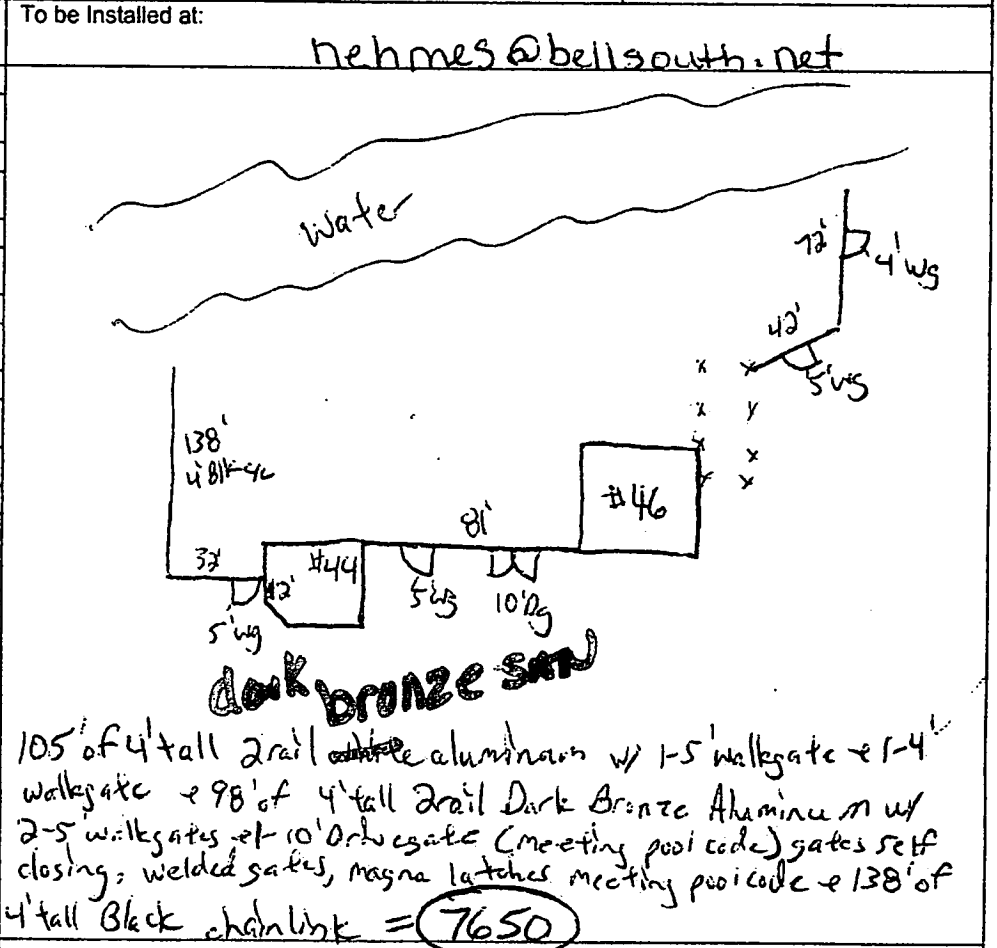 To be Installed at:
nehmes@bellsouth.net
Water
72'
4'wg
42'
5'wg
x x
x y
x x
x x
138'
4'Blk-c/c
81'
#46
32'
#44
12'
5'wg
5'wg
10'Dg
dark bronze
105' of 4' tall 2rail aluminum w/ 1-5' walkgate + 1-4'
walkgate + 98' of 4' tall 2rail Dark Bronze Aluminum w/
2-5' walkgates + 1-10' Drivegate (meeting pool code) gates self
closing, welded gates, magna latches meeting pool code + 138' of
4' tall Black chainlink = 7650